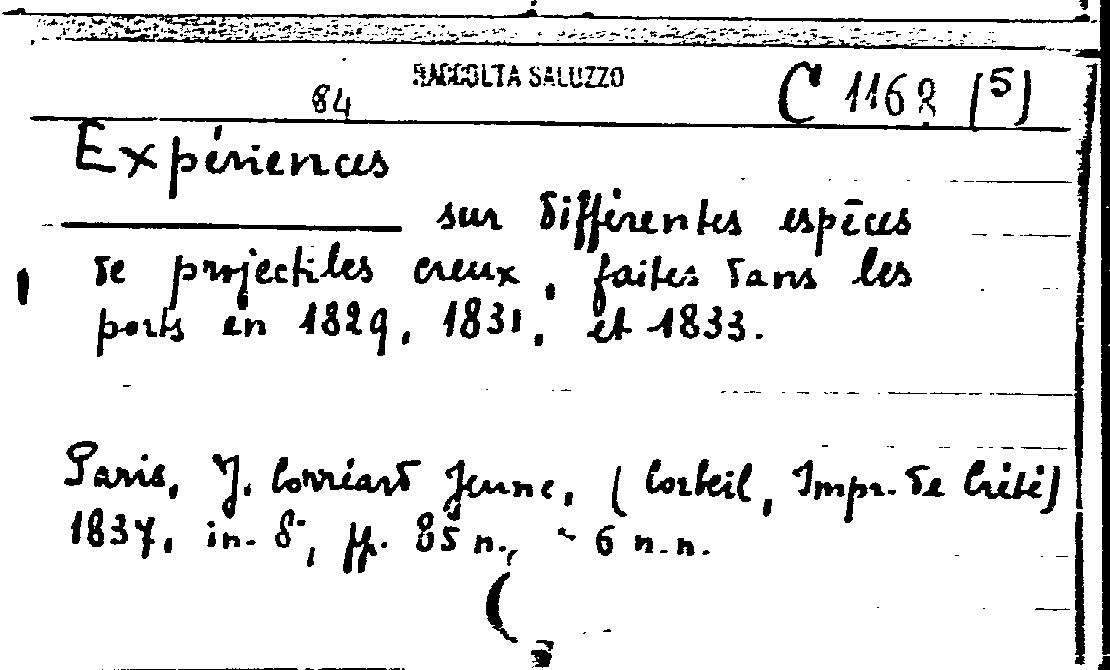 RACCOLTA SALUZZO
84 C 1168 (5)
Expériences
sur différentes espèces
de projectiles creux, faites dans les
ports en 1829, 1831, et 1833.
Paris, J. Corréard Jeune, (Corbeil, Impr. de Crété)
1837, in-8°, pp. 85 n., - 6 n.n.